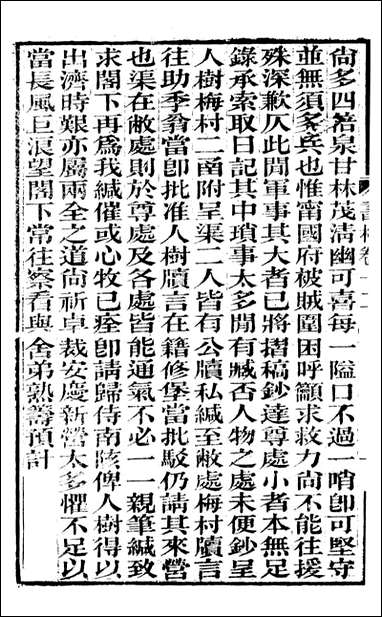 尙多四箬泉甘林茂淸幽可喜每一隘口不過一哨卽可堅守
並無須多兵也惟甯國府被賊圍困呼籲求救力尙不能往援
殊深歉仄此閒軍事其大者已將摺稿鈔達尊處小者本無足
錄承索取日記其中瑣事太多閒有臧否人物之處未便鈔呈
人樹梅村二函附呈渠二人皆有公牘私緘至敝處梅村牘言
往助季翁當卽批准人樹牘言在籍修堡當批駁仍請其來營
也渠在敝處則於尊處及各處皆能通氣不必一一親筆緘致
求閣下再爲我緘催或心牧已痊卽請歸侍南陔俾人樹得以
出濟時艱亦屬兩全之道尙祈卓裁安慶新營太多懼不足以
當長風巨浪望閣下常往察看與舍弟熟籌預計